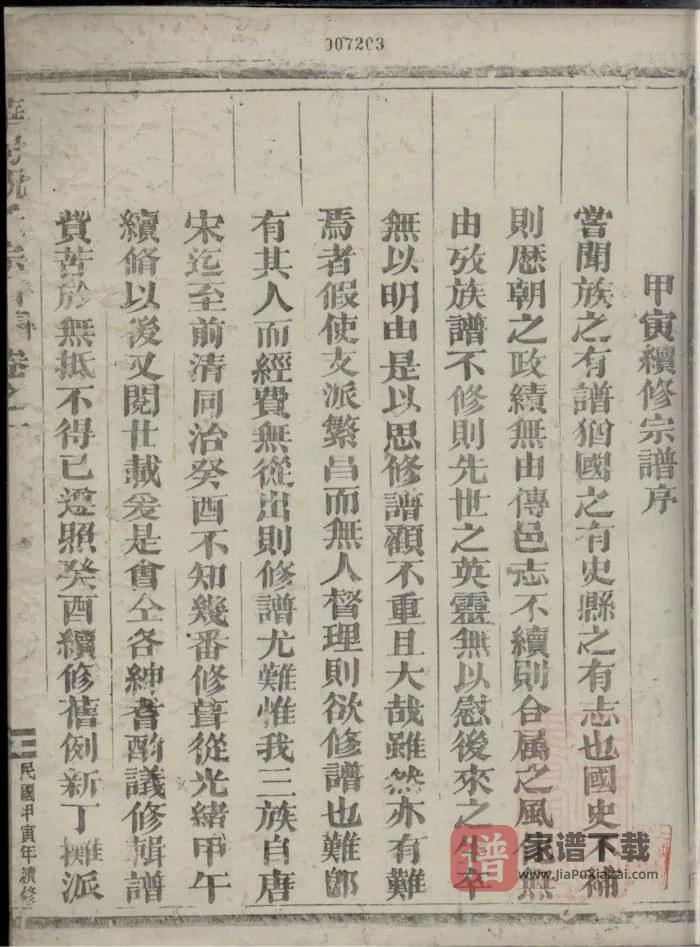 007203
甲寅續修宗譜序
嘗聞族之有譜猶國之有史縣之有志也國史不補
則歷朝之政績無由傳邑志不續則合属之風無
由攷族譜不修則先世之英靈無以慰後來之生卒
無以明由是以思修譜顧不重且大哉雖然亦有難
焉者假使支派繁昌而無人督理則欲修譜也難郎
有其人而經費無從出則修譜尤難惟我三族自唐
宋迄至前清同治癸酉不知幾番修葺從光緒甲午
續脩以後又閱廿載爰是會仝各紳耆酌議修輯譜
費苦於無抵不得已遵照癸酉續修舊例新丁攤派
宗譜 卷之一
民國甲寅年續修
譜 家谱下载
www.JiaPuXiaZai.com